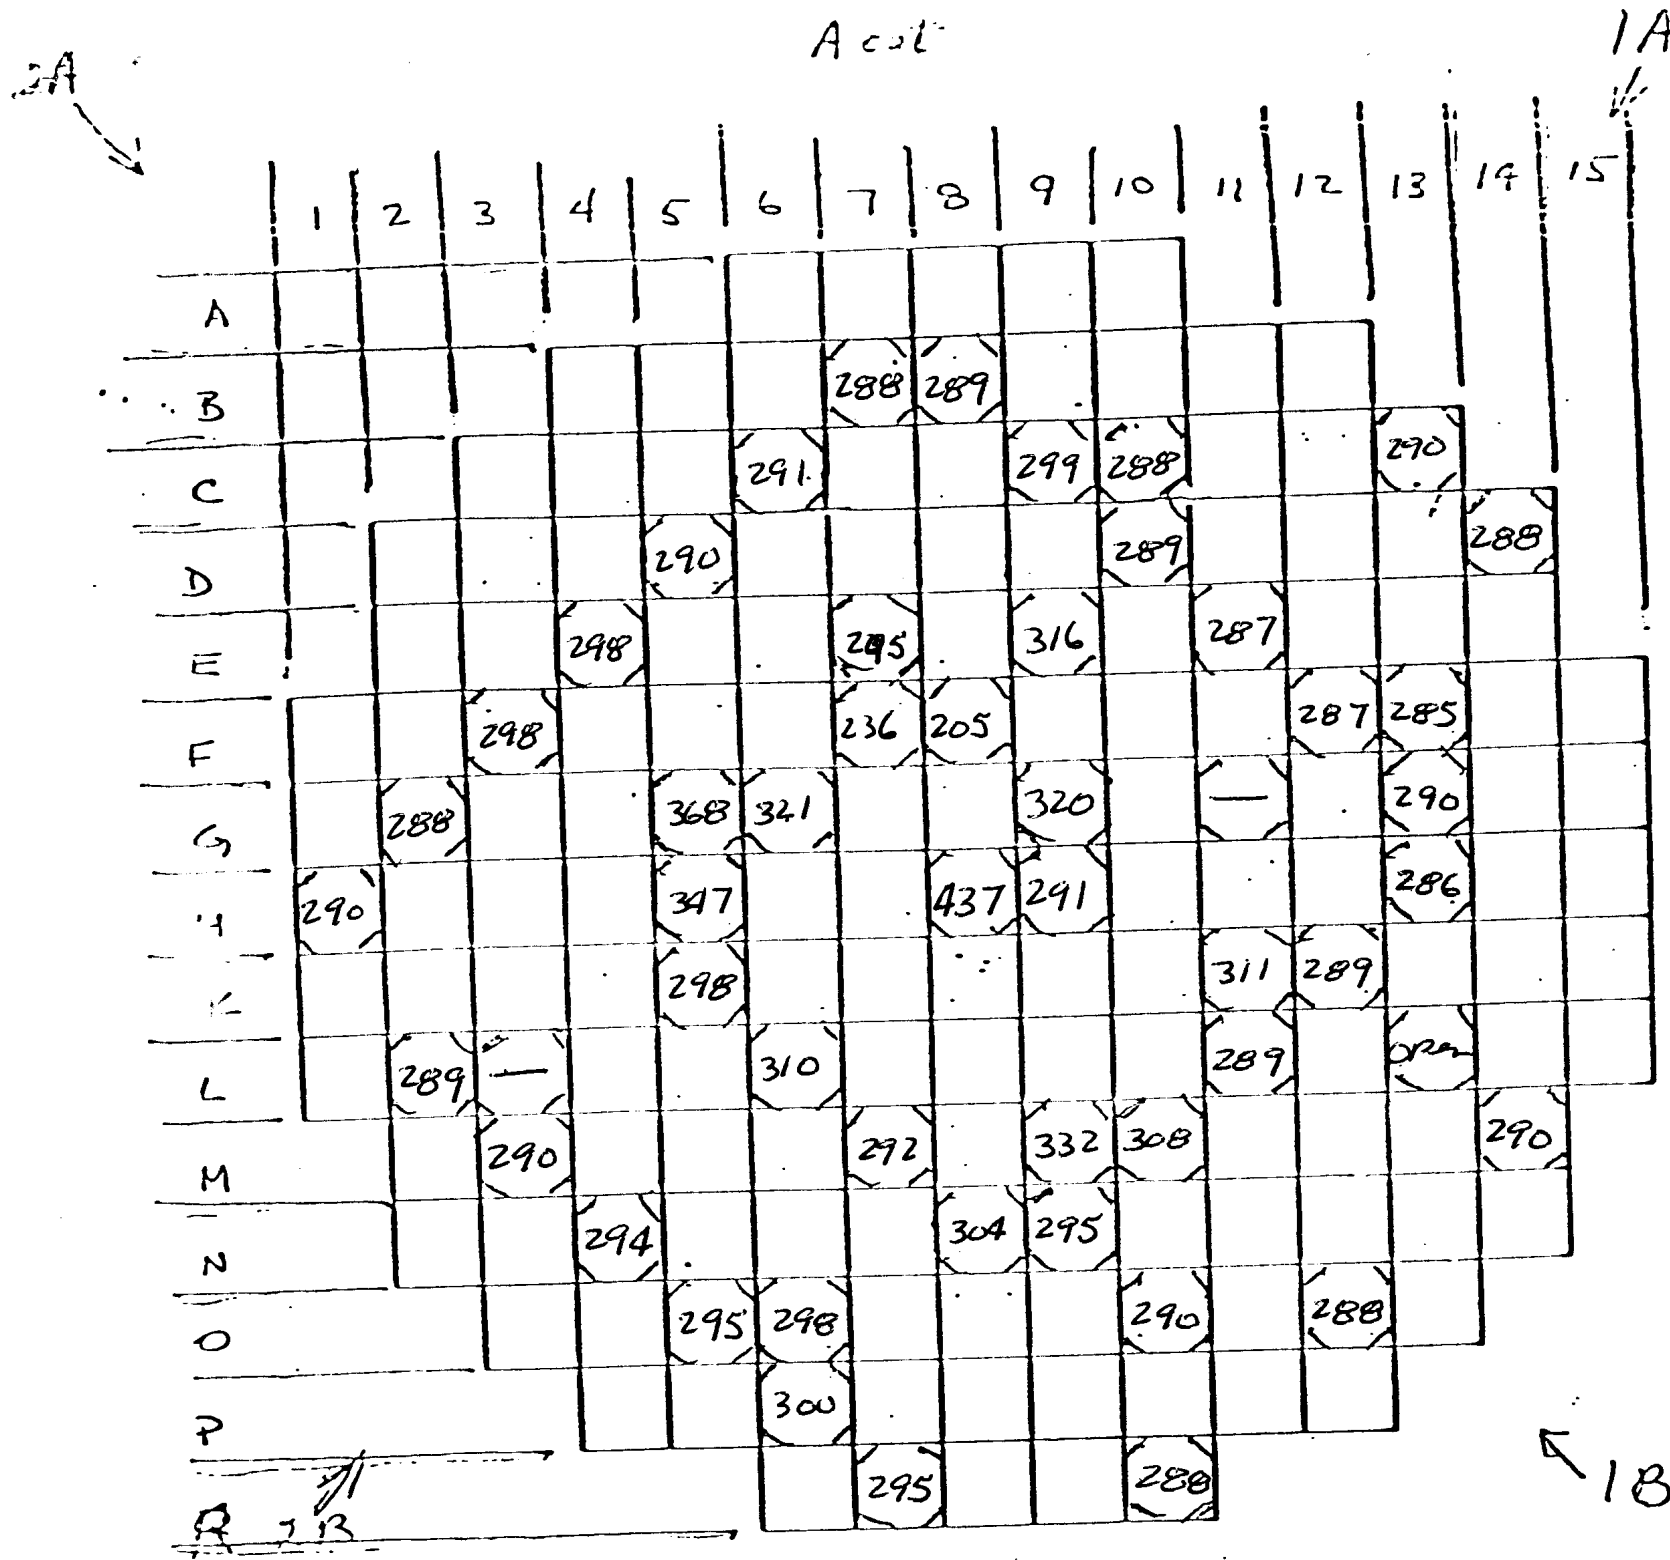 1A
1 2 3 4 5 6 7 8 9 10 11 12 13 14 15
A
B 288 289
C 291 299 288 290
D 290 289 288
E 298 316 287
F 298 236 205 287 285
G 288 368 321 320 — 290
H 290 347 437 291 286
K 298 311 289
L 289 — 310 289
M 290 292 332 308 290
N 294 304 295
O 295 298 290 288
P 300
R 295 288
1B